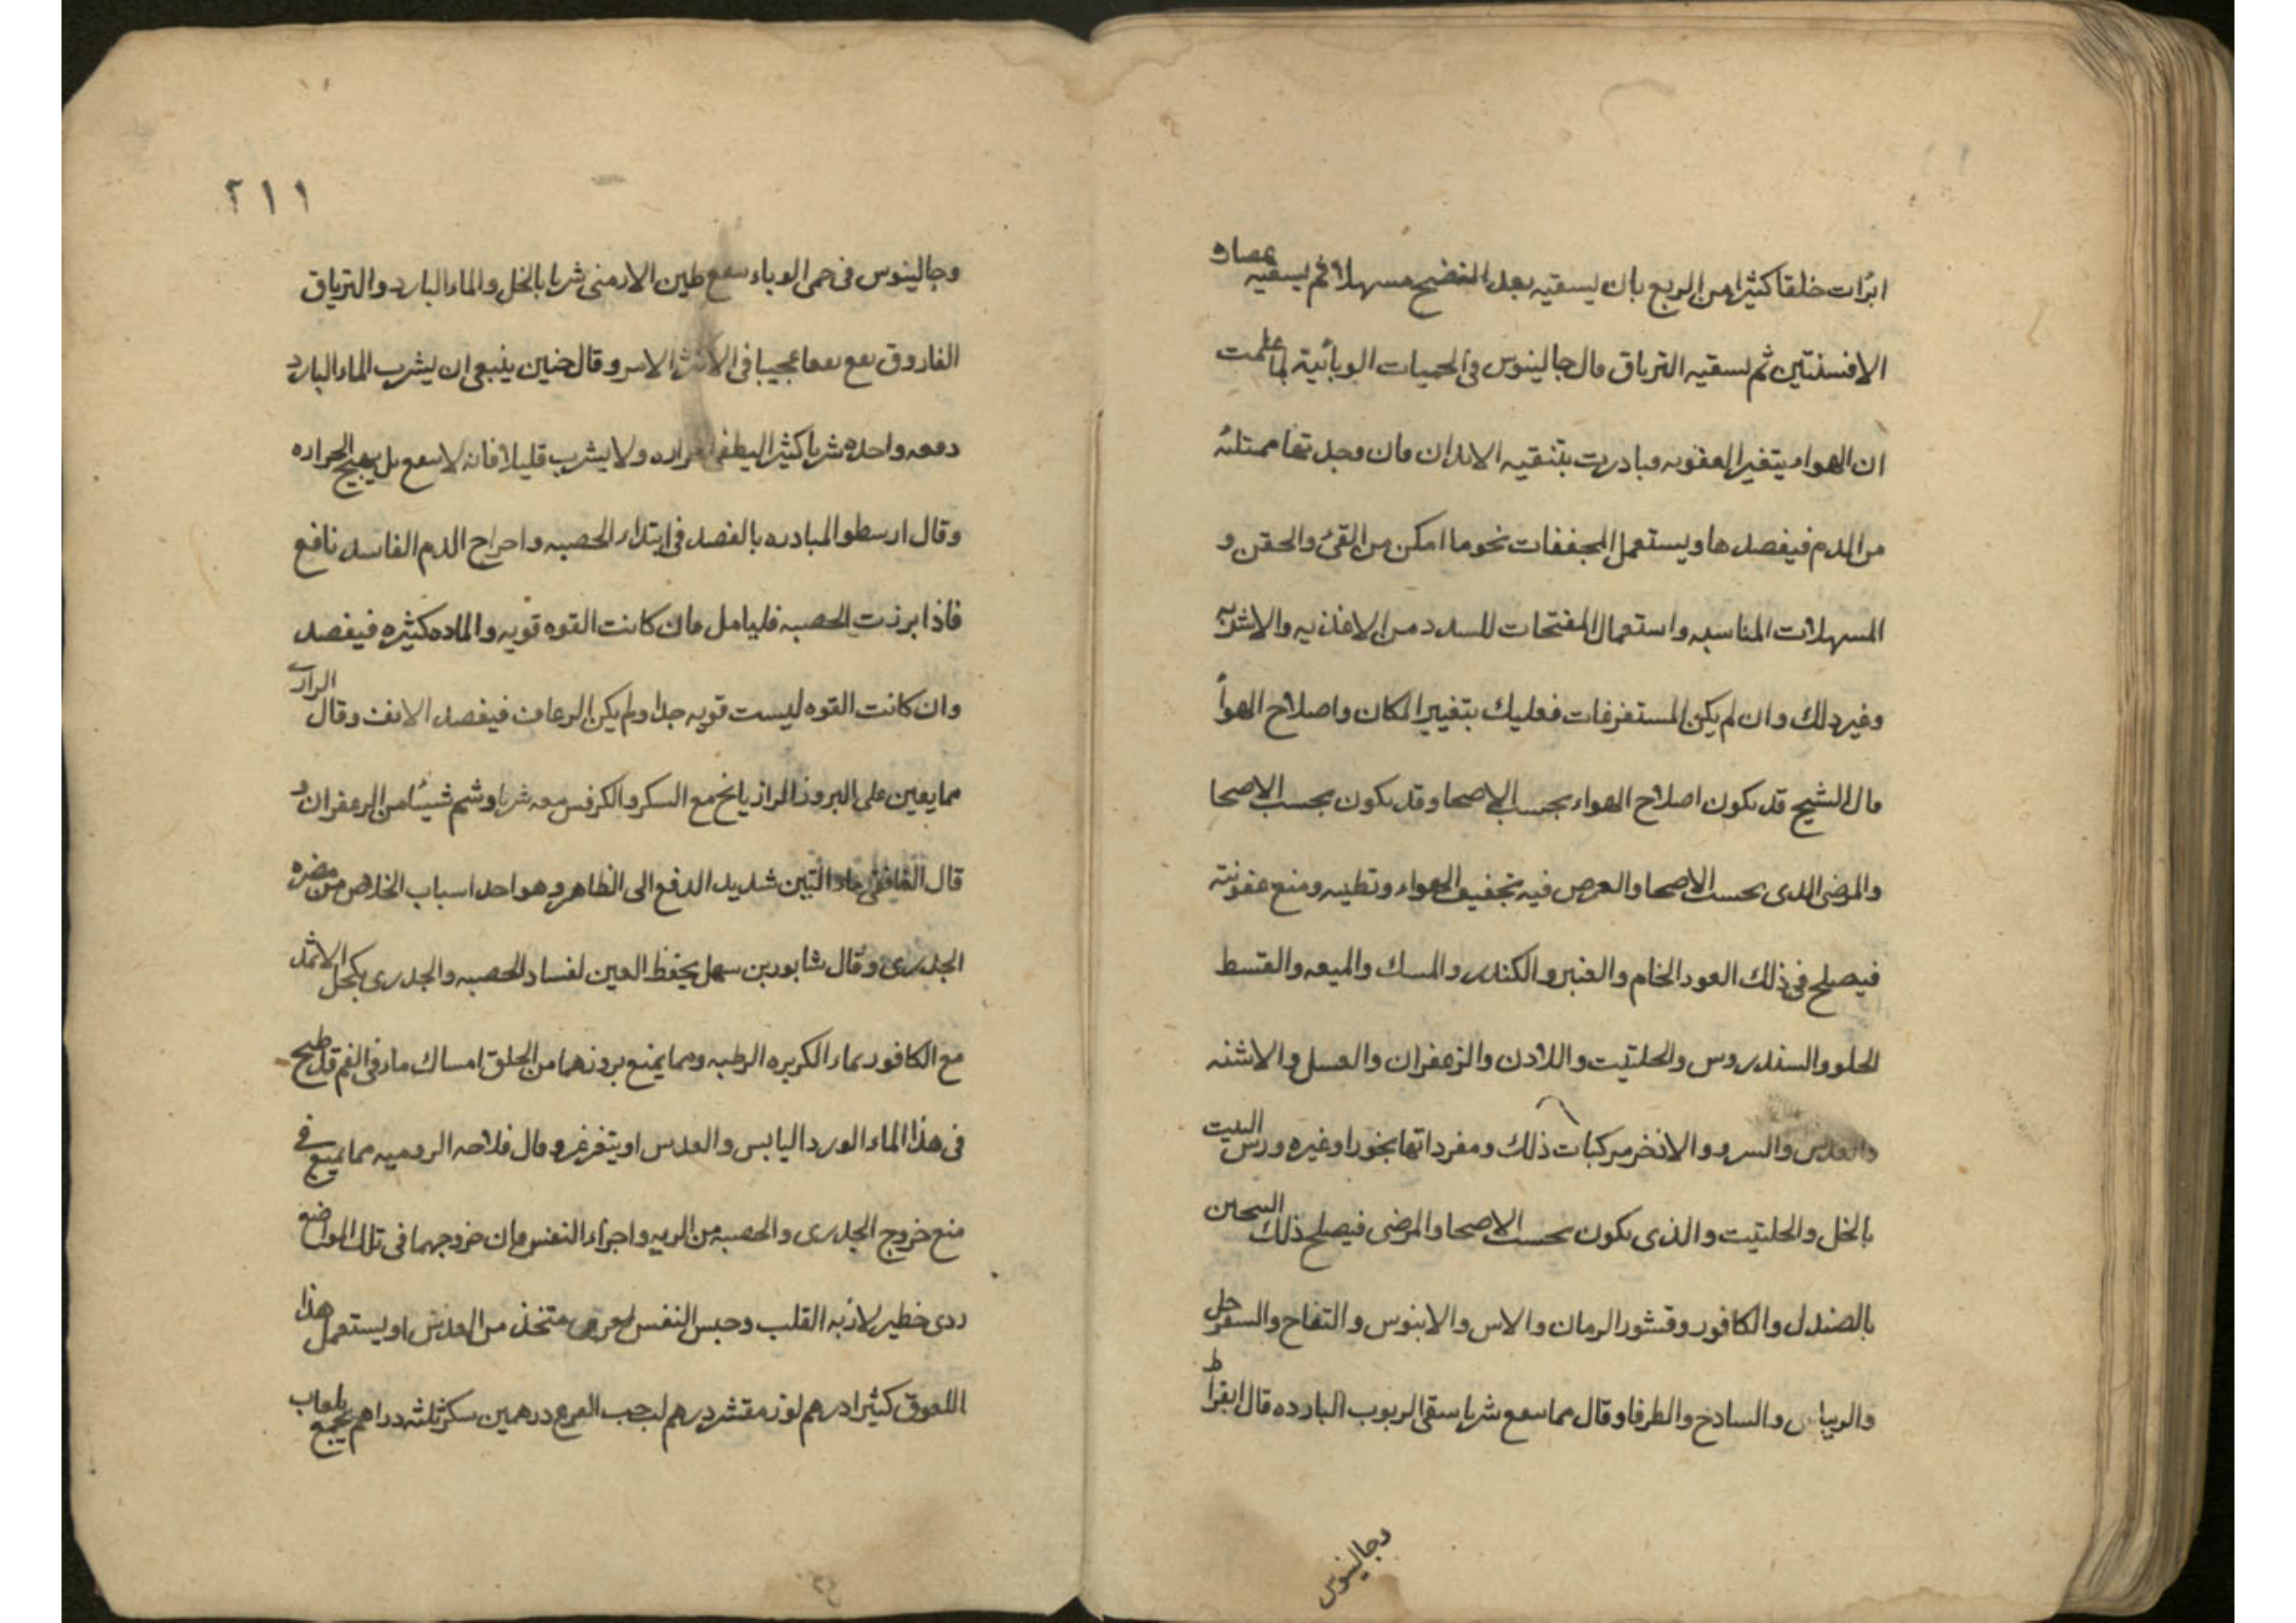 ابرات خلقا كثيرا من الربع بان يسقيه بعد النضج مسهلا ثم يسقيه عصاره
الافسنتين ثم يسقيه الترياق قال جالينوس فى الحميات الوبائية لما علمت
ان الهواء يتغير العفونه فبادرت بتنقيه الابدان فان وجدتها ممتلئه
من الدم فيفصدها ويستعمل المجففات نحو ما امكن من القئ والحقن و
المسهلات المناسبه واستعمال المفتحات للسدد من الاغذيه والاشربه
وغير ذلك وان لم يكن المستفرغات فعليك بتغيير المكان واصلاح الهوأ
قال الشيخ قد يكون اصلاح الهواء بحسب الاصحا وقد يكون بحسب الاصحا
والمرضى الذى بحسب الاصحا والغرض فيه تجفيف الهواء وتطيبه ومنع عفونته
فيصلح فى ذلك العود الخام والعنبر والكندر والمسك والميعه والقسط
الحلو والسندروس والحلتيت واللادن والزعفران والعسل والاشنه
والسرو والاذخر مركبات ذلك ومفرداتها بخورا وغيره ورش البيت
بالخل والحلتيت والذى يكون بحسب الاصحا والمرضى فيصلح ذلك
بالصندل والكافور وقشور الرمان والاس والابنوس والتفاح والسفرجل
والريباس والسادج والطرفا وقال مما ينفع شربا سقى الربوب البارده قال ابقراط
وجالينوس
٢١١
وجالينوس فى حمى الوباء ينفع طين الارمنى شربا بالخل والماء البارد والترياق
الفاروق ينفع نفعا عجيبا فى الامر وقال حنين ينبغى ان يشرب الماء البارد
دفعه واحده شربا كثيرا ليطفى الحراره ولا يشرب قليلا فانه لا ينفع بل يهيج الحراره
وقال ارسطو المبادره بالفصد فى ابتداء الحصبه واخراج الدم الفاسد نافع
فاذا برزت الحصبه فليامل فان كانت القوه قويه والماده كثيره فيفصد
وان كانت القوه ليست قويه جدا ولم يكن الرعاف فيفصد الانف وقال الرازى
مما يعين على البروز الرازيانج مع السكر والكرفس معه شربا وشم شيئا من الزعفران و
قال الغافقى ماء التين شديد الدفع الى الظاهر وهو احد اسباب الخلاص من مضره
الجدرى وقال شابور بن سهل يحفظ العين لفساد الحصبه والجدرى بكحل الاثمد
مع الكافور بماء الكزبره الرطبه ومما يمنع بروزهما من الحلق امساك ماء فى الفم قد طبخ
فى هذا الماء الورد اليابس والعدس او يتغرغر وقال فلاحه الروميه مما ينفع فى
منع خروج الجدرى والحصبه من الريه واجراء النفس فان خروجهما فى تلك المواضع
ردى خطير لاذيه القلب وحبس النفس لعوق متخذ من العدس او يستعمل هذا
اللعوق كثيرا درهم لوز مقشر درهم لب حب القرع درهمين سكر ثلثه دراهم يجمع بلعاب